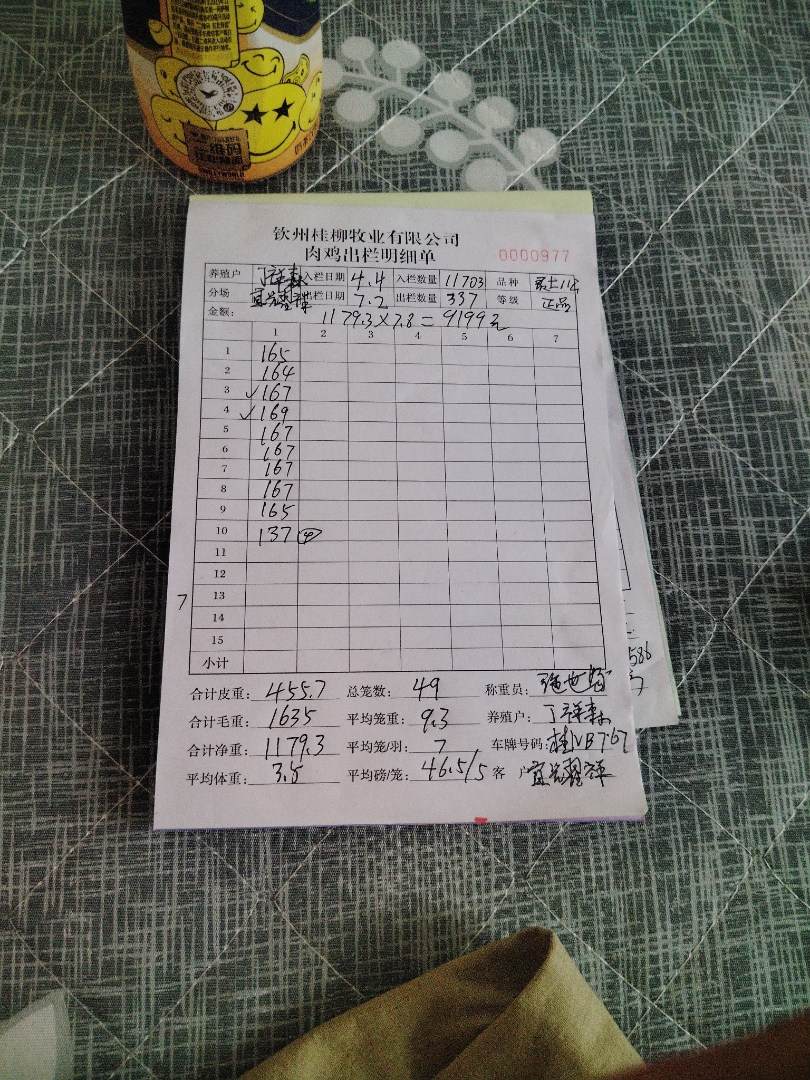 钦州桂柳牧业有限公司
肉鸡出栏明细单 0000977
养殖户 丁祥森 入栏日期 4.4 入栏数量 11703 品种
分场 出栏日期 7.2 出栏数量 337 等级 正品
金额: 1179.3×7.8=9199元
1 2 3 4 5 6 7
1 165
2 164
3 ✓167
4 ✓169
5 167
6 167
7 167
8 167
9 165
10 137 ④
11
12
7 13
14
15
小计
合计皮重: 455.7 总笼数: 49 称重员:
合计毛重: 1635 平均笼重: 9.3 养殖户: 丁祥森
合计净重: 1179.3 平均笼/羽: 7 车牌号码:
平均体重: 3.5 平均磅/笼: 46.5/5 客户
586